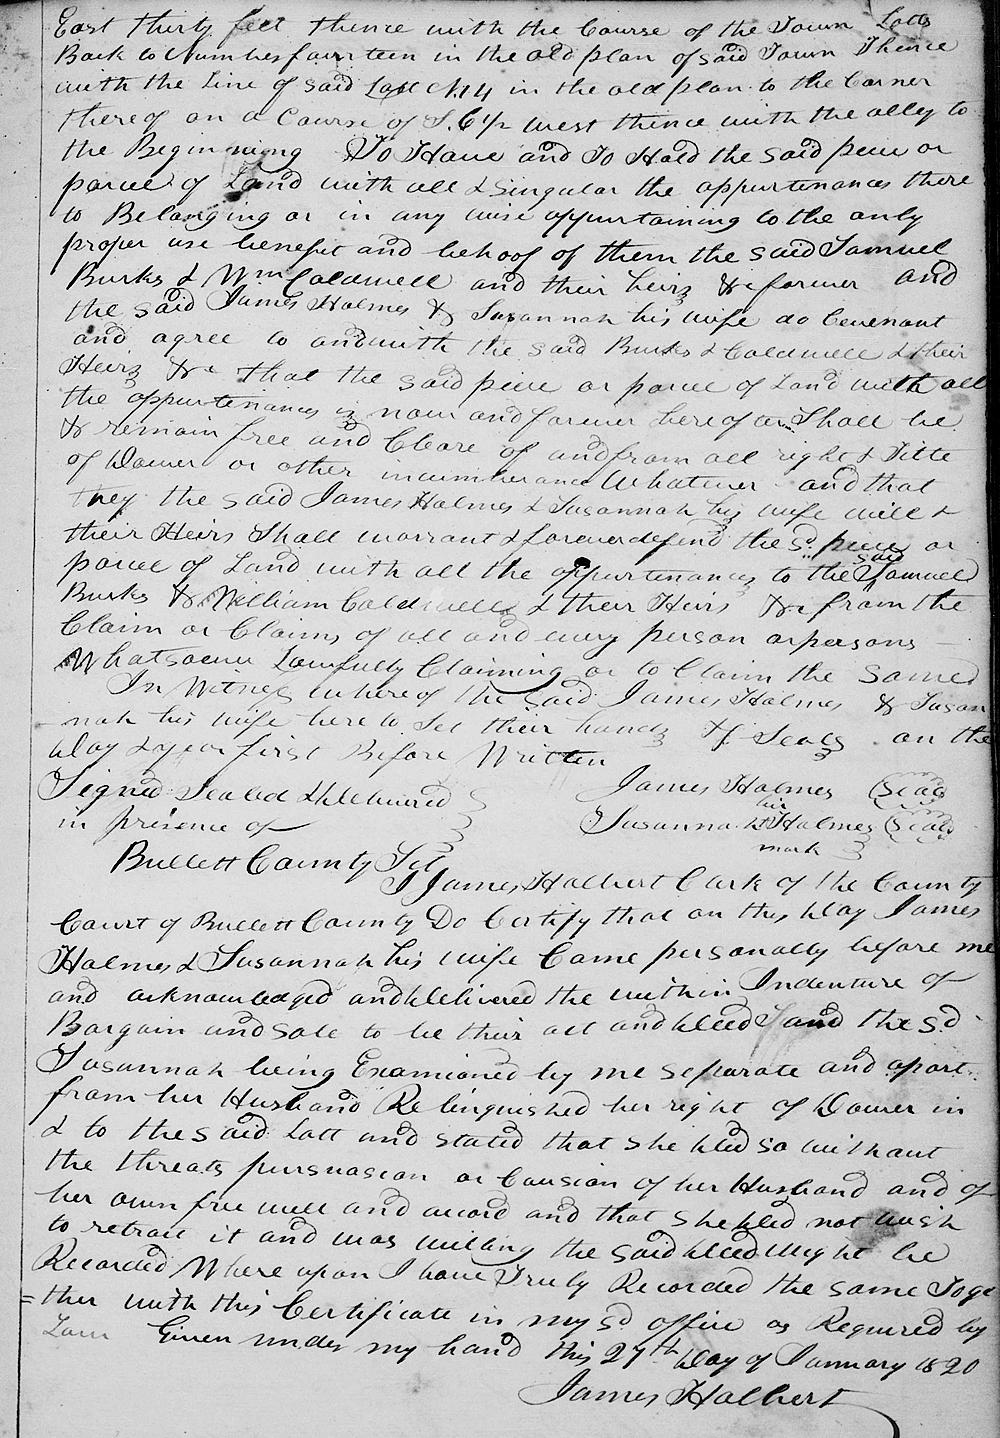 East thirty feet thence with the Course of the Town Lotts
Back to Number fourteen in the old plan of said Town Thence
with the Line of said Lott N14 in the old plan to the Corner
thereof on a Course of S. 6½ west thence with the alley to
the Beginning To Have and To Hold the said peice or
parcel of Land with all & Singular the appurtenances there
to Belonging or in any wise appurtaining to the only
proper use benefit and behoof of them the said Samuel
Burks & Wm Caldwell and their heirs &c forever and
the said James Holmes & Susannah his wife do Covenant
and agree to and with the said Burks & Caldwell & their
Heirs &c that the said piece or parcel of Land with all
the appurtenances is now and forever hereafter Shall be
& remain free and Cleare of and from all right & Title
of Dower or other incumberance Whatever and that
they the said James Holmes & Susannah his wife will &
their Heirs Shall warrant & forever defend the sd. peice or
parcel of Land with all the appurtenances to the said Samuel
Burks & William Caldwell & their Heirs &c from the
Claim or Claims of all and every person or persons
Whatsoever Lawfully Claiming or to Claim the Same
In Witness whereof the said James Holmes & Susan
nah his wife here to Set their hands & Seals on the
day & year first Before Written
Signed Sealed & Delivered
in presence of
James Holmes (Seal)
her
Susannah + Holmes (Seal)
mark
Bullett County Sct
I James Halbert Clark of the County
Court of Bullett County Do Certify that on this day James
Holmes & Susannah his wife Came personally before me
and acknowledged and Delivered the within Indenture of
Bargain and Sale to be their act and deed and the sd
Susannah being Examioned by me separate and apart
from her Husband Relinquished her right of Dower in
& to the said Lott and stated that she did so without
the threats pursuasion or Causion of her Husband and of
her own free will and accord and that she did not wish
to retract it and was willing the said deed might be
Recorded Where upon I have Truly Recorded the same Toge
=ther with this Certificate in my sd office as Required by
Law Given under my hand this 27th day of January 1820
James Halbert